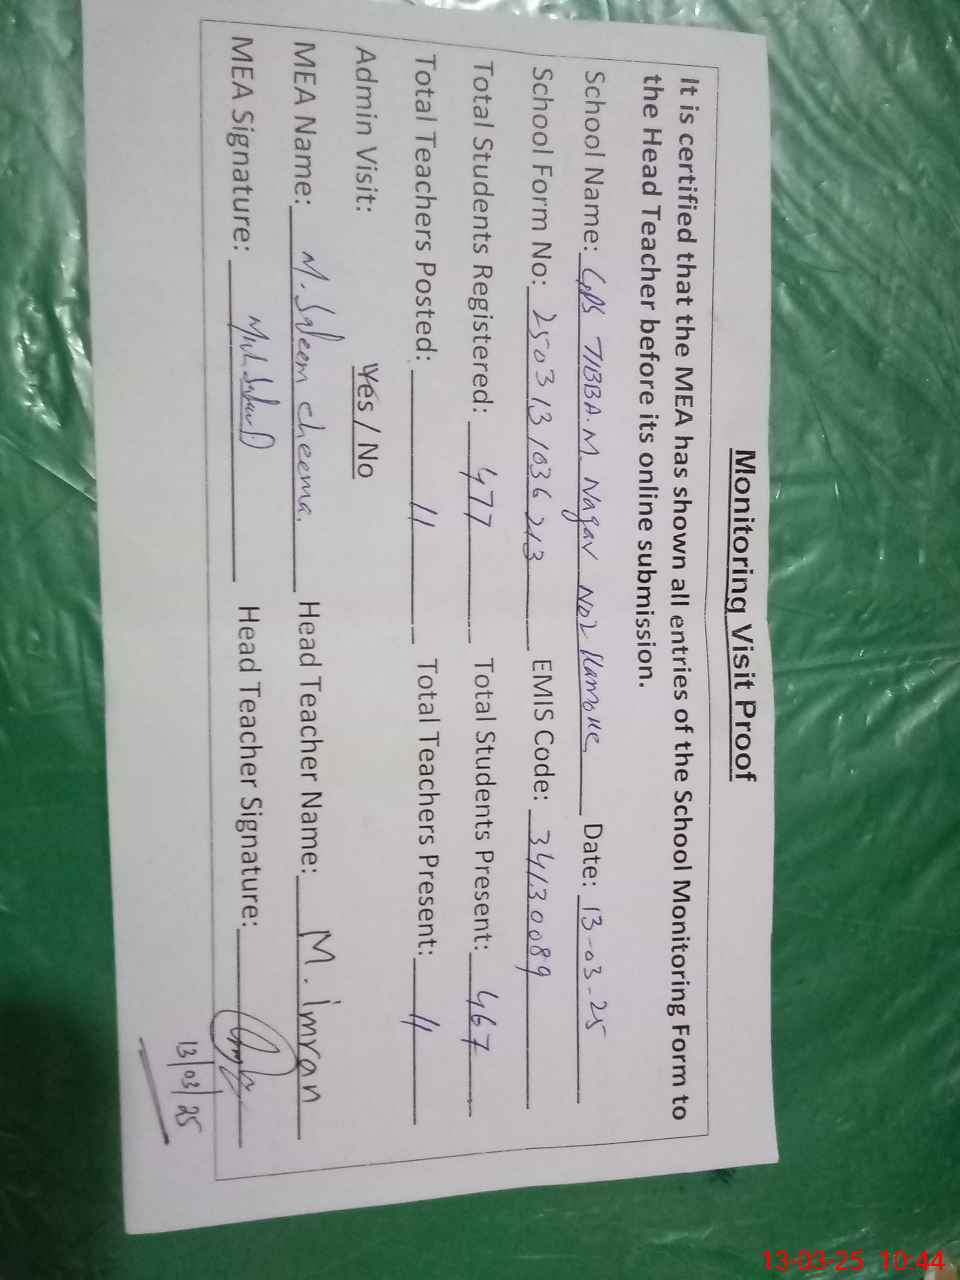 Monitoring Visit Proof
It is certified that the MEA has shown all entries of the School Monitoring Form to
the Head Teacher before its online submission.
School Name: GPS TIBBA.M. Nagar No2 Kamoke Date: 13-03-25
School Form No: 2503131036213 EMIS Code: 34130089
Total Students Registered: 477 Total Students Present: 467
Total Teachers Posted: 11 Total Teachers Present: 11
Admin Visit: Yes / No
MEA Name: M. Saleem cheema. Head Teacher Name: M. imran
MEA Signature: Head Teacher Signature:
13/03/25
13-03-25 10:44